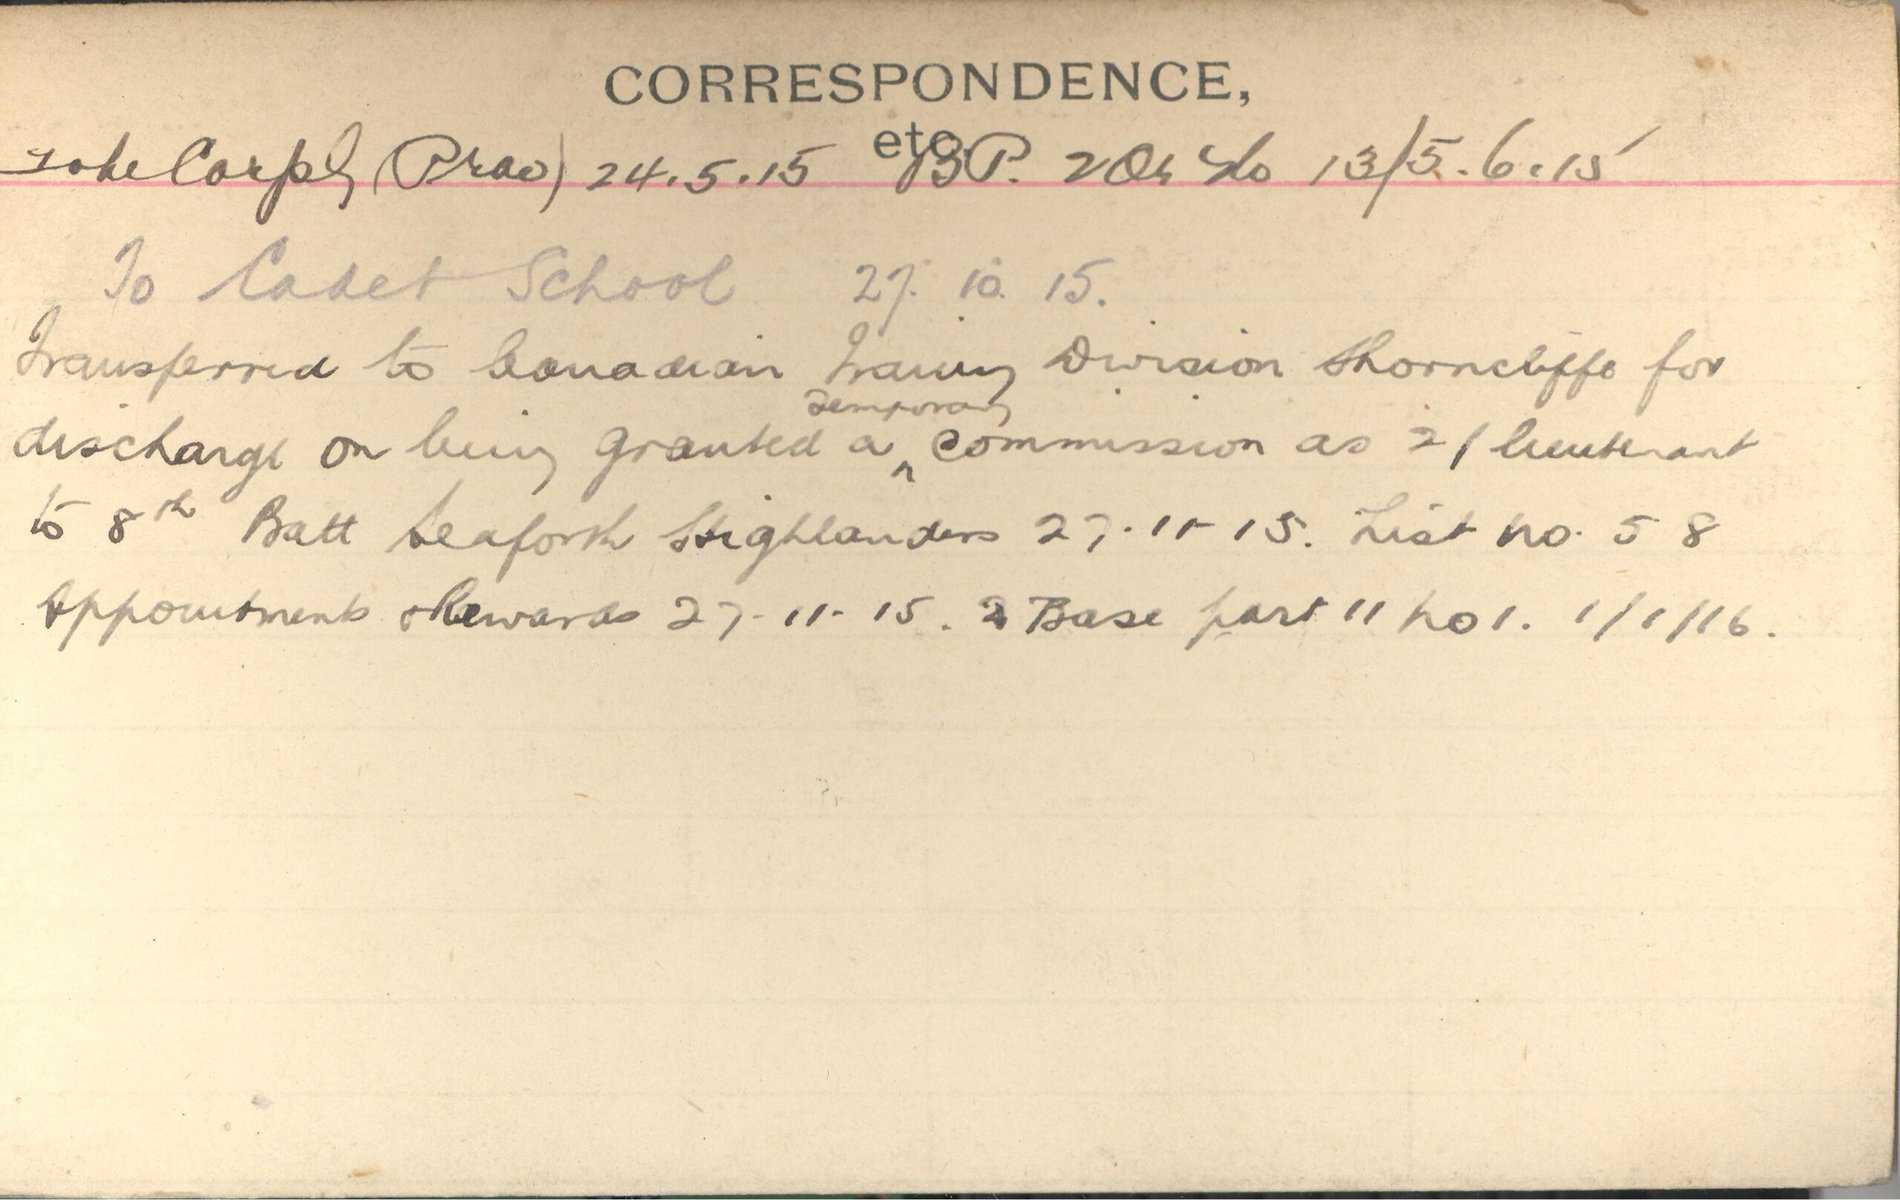 CORRESPONDENCE,
etc.
To be Corpl (Prov) 24.5.15 BP. 2 Or No 13/5.6.15
To Cadet School 27. 10. 15.
Transferred to Canadian Training Division Shorncliffe for
temporary
discharge on being granted a ^ Commission as 2/ lieutenant
to 8th Batt Seaforth Highlanders 27-11-15. List no. 58
Appointments & Rewards 27-11-15. Base part 11 no 1. 1/1/16.